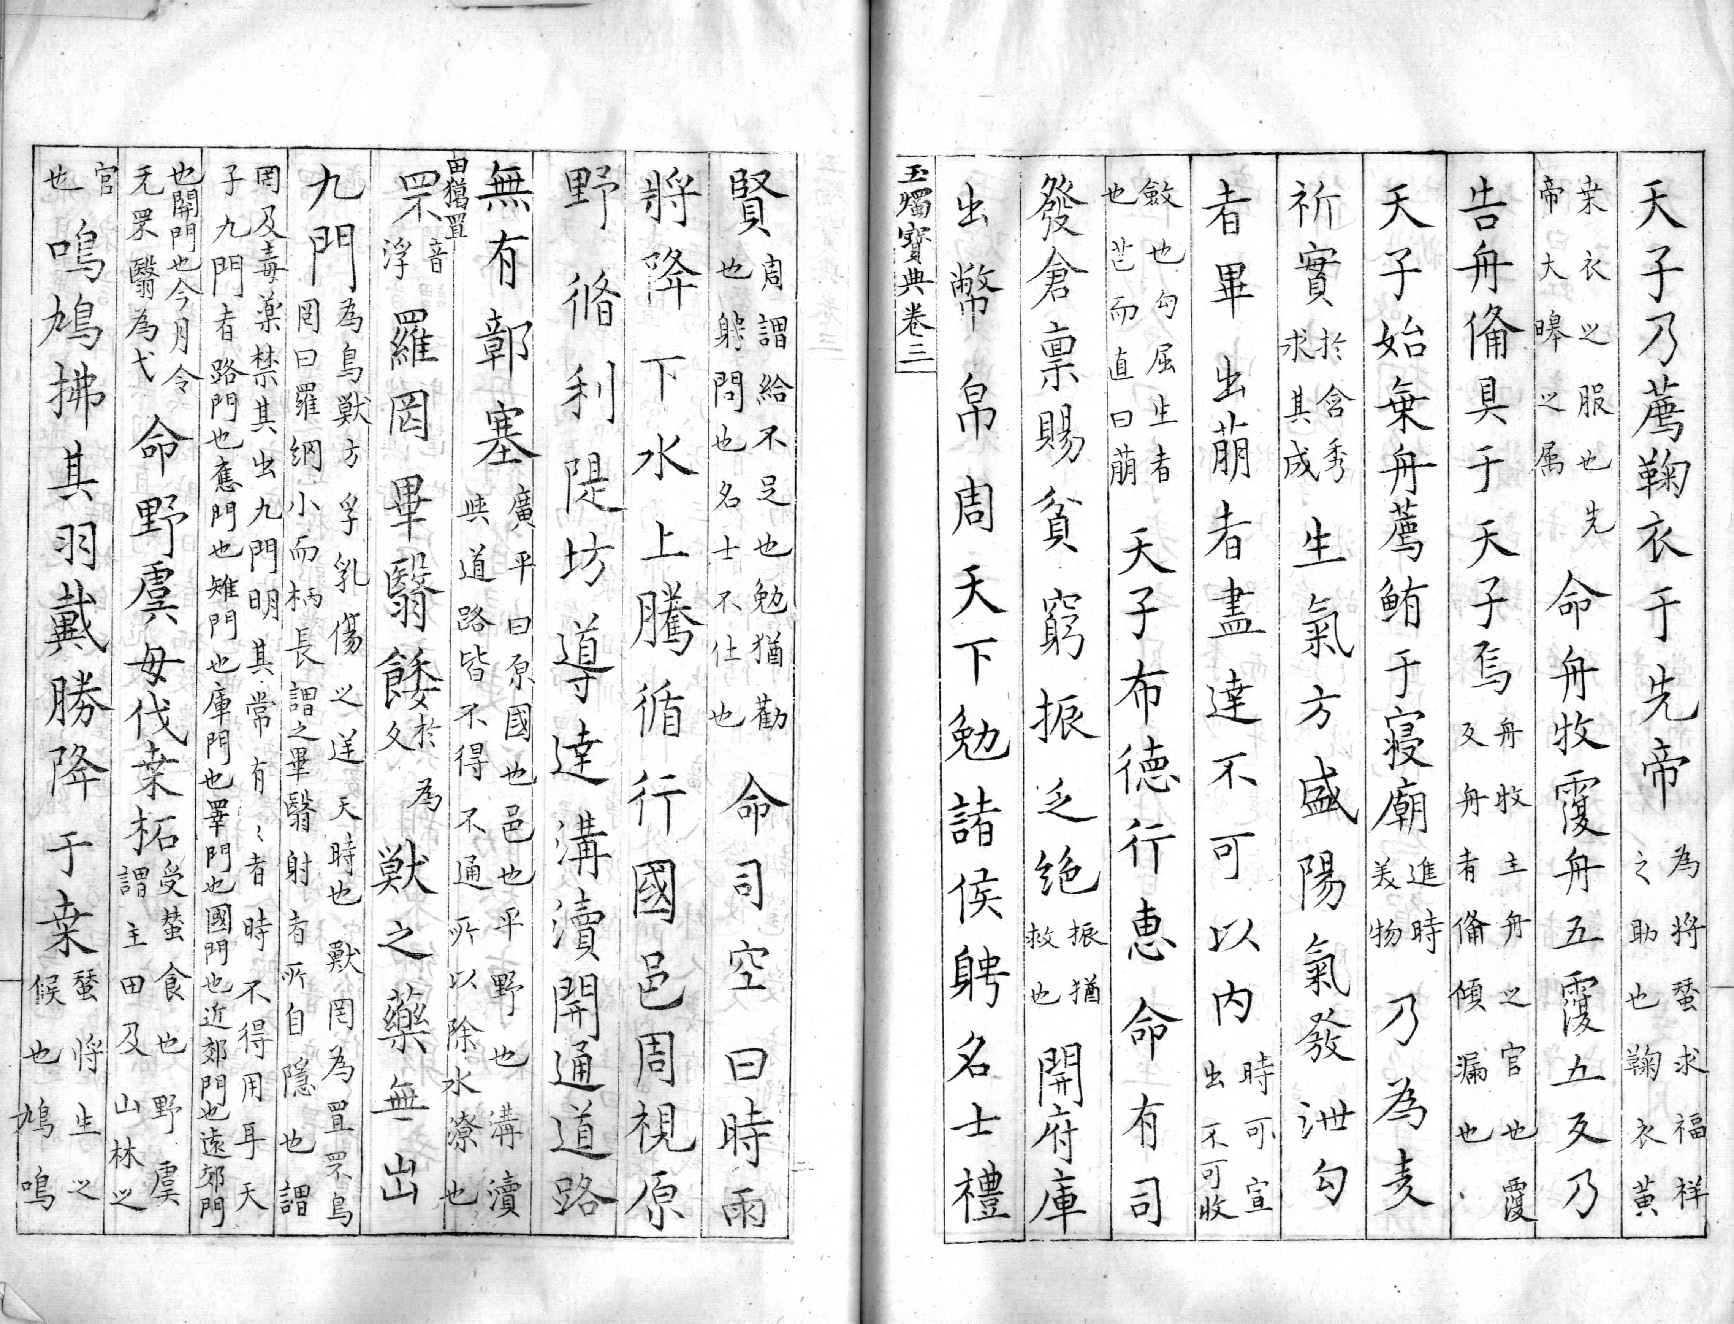 天子乃薦鞠衣于先帝為將蝅求福祥之助也鞠衣黃
桒衣之服也先帝曰大皞之属命舟牧覆舟五覆五反乃
告舟備具于天子焉舟牧主舟之官也覆反舟者備傾漏也
天子始乗舟薦鮪于寝廟進時美物乃為麦
祈實於含秀求其成生氣方盛陽氣發泄勾
者畢出萠者盡達不可以内時可宣出不可收
敛也勾屈生者也芒而直曰萠天子布徳行恵命有司
發倉禀賜貧窮振乏絶振猶救也開府庫
出幣帛周天下勉諸侯聘名士禮
玉燭寶典卷三
賢周謂給不足也勉猶勸也聘問也名士不仕也命司空曰時雨
將降下水上騰循行國邑周視原
野脩利隄坊導達溝瀆開通道路
無有鄣塞廣平曰原國也邑也平野也溝瀆與道路皆不得不通所以除水潦也田獦罝
罘音浮羅罔畢翳餧於為久獸之藥無出
九門為鳥獸方孚乳傷之逆天時也獸罔為罝罘鳥罔曰羅網小而柄長謂之畢翳射者所自隱也謂
罔及毒藥禁其出九門明其常有〻者時不得用耳天子九門者路門也應門也雉門也庫門也睪門也國門也近郊門也遠郊門
也關門也今月令无罘翳為弋命野虞毋伐桒柘受蝅食也野虞謂主田及山林之
官也鳴鳩拂其羽戴勝降于桒蝅將生之候也鳩鳴